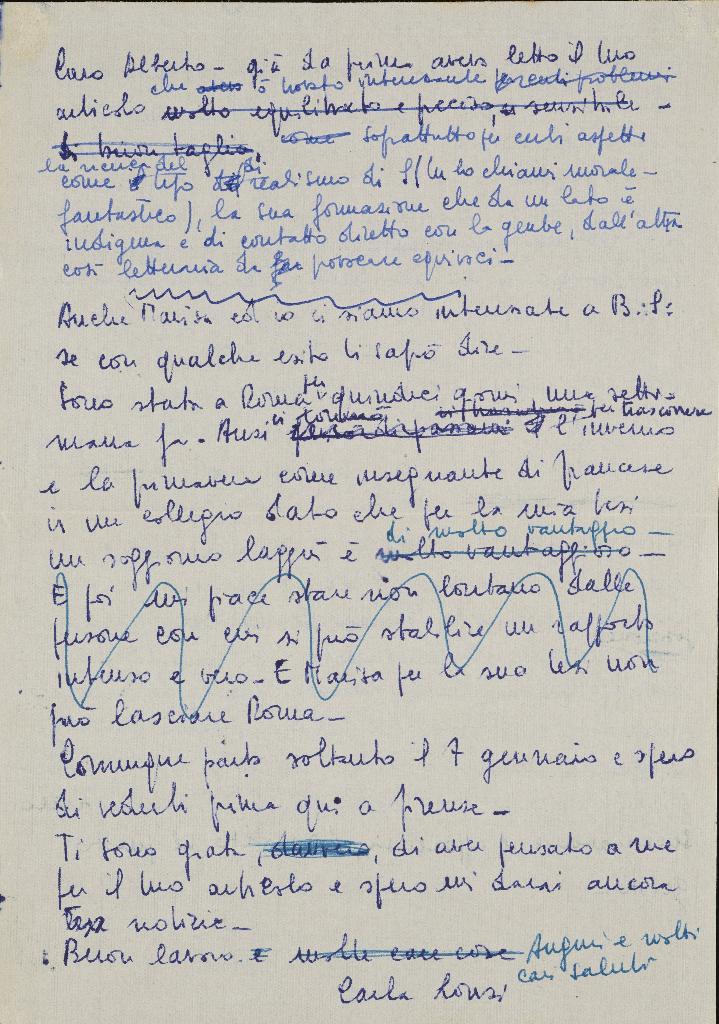 Caro Alberto - già da prima avevo letto il tuo
che è molto interessante per certi problemi
articolo molto equilibrato e preciso, e sensibile -
di buon taglio, come soprattutto per certi aspetti
la ricerca del di
come tipo realismo di S (tu lo chiami morale-
fantastico), la sua formazione che da un lato è
indigena e di contatto diretto con la gente, dall'altra
così letteraria da far possere equivoci -
Anche Marisa ed io ci siamo interessate a B.:S:
se con qualche esito ti saprò dire -
per
Sono stata a Roma quindici giorni una setti-
mana fa. Anzi ci tornerò per trascorrere l'inverno
e la primavera come insegnante di francese
in un collegio dato che per la mia tesi
di molto vantaggio -
un soggiorno laggiù è molto vantaggioso -
E poi mi piace stare non lontano dalle
persone con cui si può stabilire un rapporto
intenso e vero - E Marisa per la sua tesi non
può lasciare Roma -
Comunque parto soltanto il 7 gennaio e spero
di vederti prima qui a Firenze -
Ti sono grata, davvero, di aver pensato a me
per il tuo articolo e spero mi darai ancora
tue notizie -
Buon lavoro. e molte care cose Auguri e molti
cari saluti
Carla Lonzi